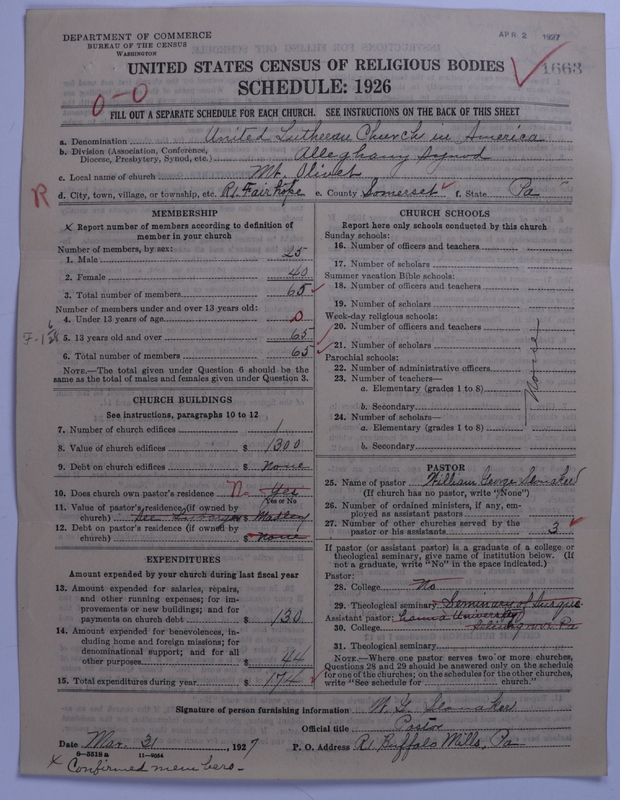 DEPARTMENT OF COMMERCE
BUREAU OF THE CENSUS
WASHINGTON
APR 2 1927
1663
UNITED STATES CENSUS OF RELIGIOUS BODIES
SCHEDULE: 1926
0-0
FILL OUT A SEPARATE SCHEDULE FOR EACH CHURCH. SEE INSTRUCTIONS ON THE BACK OF THIS SHEET
a. Denomination United Lutheran Church in America
b. Division (Association, Conference, Diocese, Presbytery, Synod, etc.) Alleghany Synod
c. Local name of church Mt. Olivet
R
d. City, town, village, or township, etc. R1. Fairhope e. County Somerset f. State Pa
MEMBERSHIP
x Report number of members according to definition of
member in your church
Number of members, by sex:
1. Male 25
2. Female 40
3. Total number of members 65
Number of members under and over 13 years old:
4. Under 13 years of age 0
5. 13 years old and over 65
6. Total number of members 65
NOTE.—The total given under Question 6 should be
same as the total of males and females given under Question 3.
CHURCH BUILDINGS
See instructions, paragraphs 10 to 12
7. Number of church edifices 1
8. Value of church edifices $ 1300
9. Debt on church edifices $ None
10. Does church own pastor's residence No Yes
Yes or No
11. Value of pastor's residence (if owned by
church) $ Madley
12. Debt on pastor's residence (if owned by
church) None
EXPENDITURES
Amount expended by your church during last fiscal year
13. Amount expended for salaries, repairs,
and other running expenses; for im-
provements or new buildings; and for
payments on church debt $ 130
14. Amount expended for benevolences, in-
cluding home and foreign missions; for
denominational support; and for all
other purposes $ 44
15. Total expenditures during year $ 174
CHURCH SCHOOLS
Report here only schools conducted by this church
Sunday schools:
16. Number of officers and teachers
17. Number of scholars
Summer vacation Bible schools:
18. Number of officers and teachers
19. Number of scholars
Week-day religious schools:
20. Number of officers and teachers
21. Number of scholars
Parochial schools:
22. Number of administrative officers
23. Number of teachers—
a. Elementary (grades 1 to 8)
b. Secondary
24. Number of scholars—
a. Elementary (grades 1 to 8)
b. Secondary
None
PASTOR
25. Name of pastor William George Slonaker
(If church has no pastor, write "None")
26. Number of ordained ministers, if any, em-
ployed as assistant pastors
27. Number of other churches served by the
pastor or his assistants 3
If pastor (or assistant pastor) is a graduate of a college or
theological seminary, give name of institution below. (If
not a graduate, write "No" in the space indicated.)
Pastor:
28. College No
29. Theological seminary Seminary of Susque
Assistant pastor: hanna University
30. College Selinsgrove Pa
31. Theological seminary
NOTE.—Where one pastor serves two or more churches,
Questions 28 and 29 should be answered only on the schedule
for one of the churches; on the schedules for the other churches,
write "See schedule for church."
Signature of person furnishing information W. G. Slonaker
Official title Pastor
Date Mar. 31, 1927 P. O. Address R1 Buffalo Mills, Pa
8-5518a 11-9034
x Confirmed members-